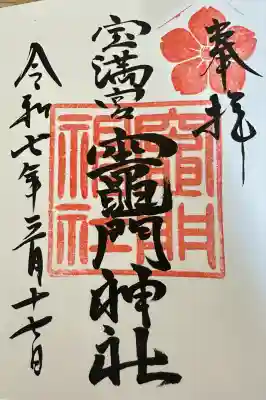 奉拝
宝満宮
竈門神社
令和七年三月十七日
竈門
神社